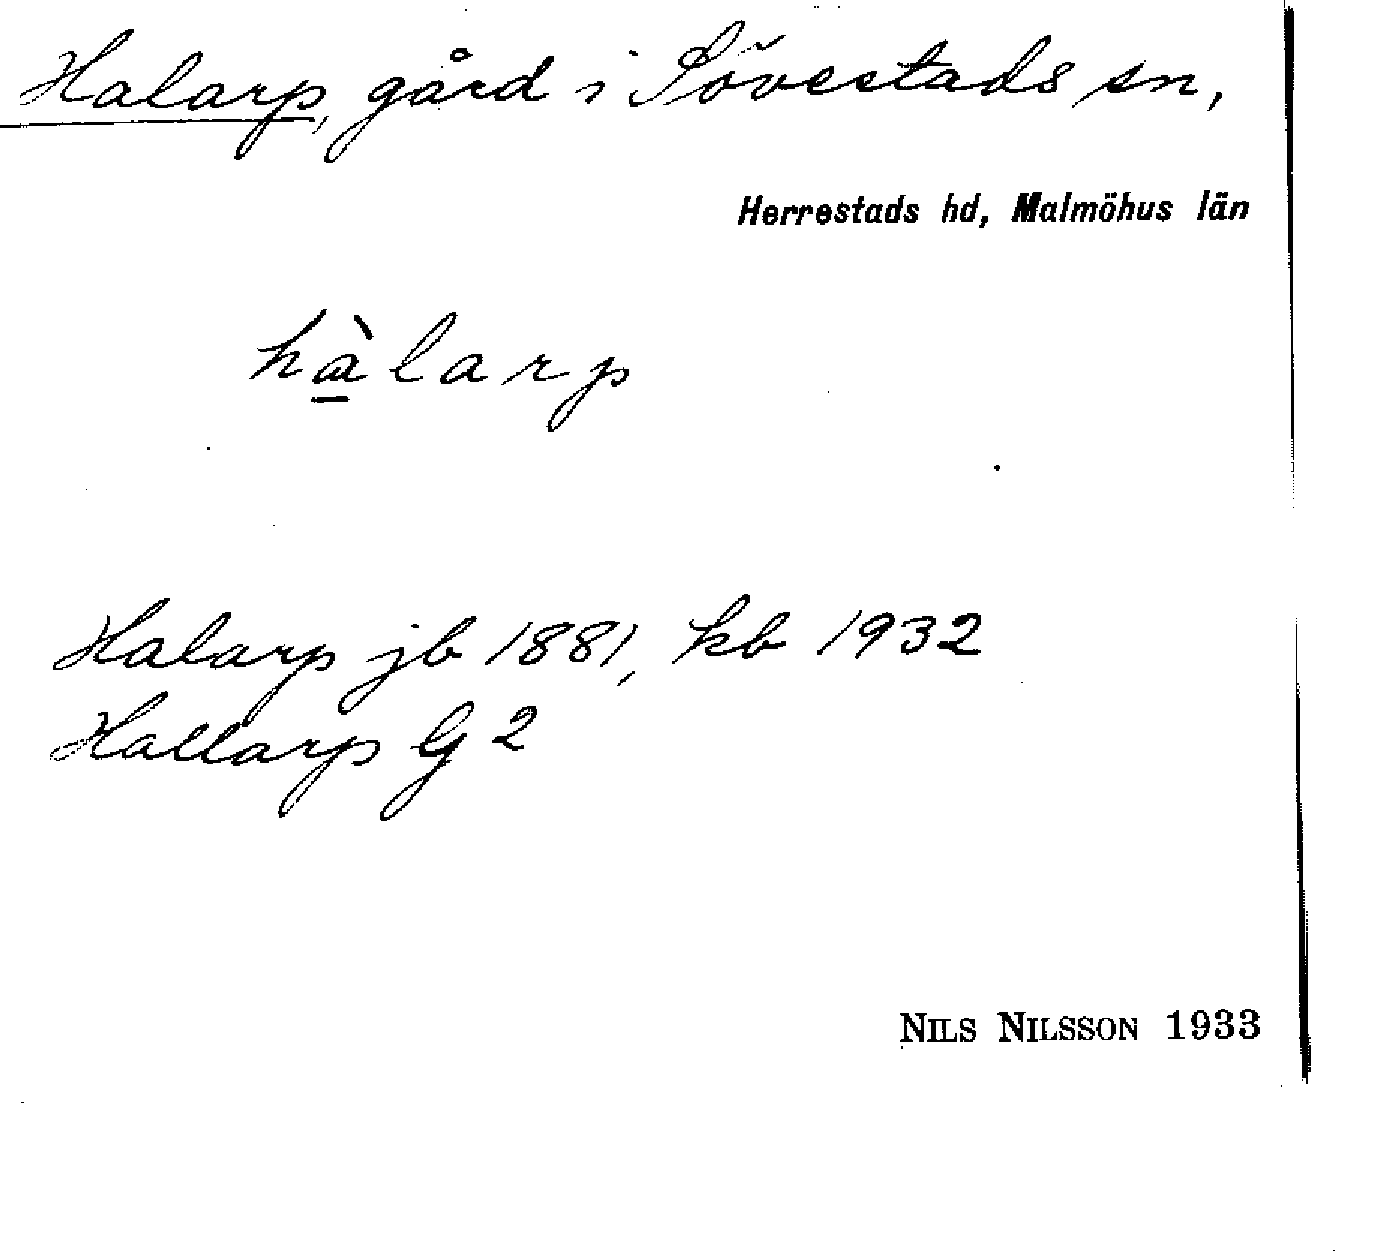 Halarp, gård i Sövestads sn,
Herrestads hd, Malmöhus län
hàlarp
Halarp jb 1881, kb 1932
Hallarp G 2
NILS NILSSON 1933